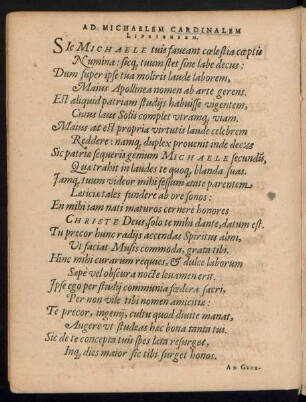 AD. MICHAELEM CARDINALEM
LIPSIENSEM.
SIc MICHAELE tuis faueant cœlestia cœptis
Numina: sicq, tuum stet sine labe decus:
Dum super ipse tua moliris laude laborem,
Maius Apollinea nomen ab arte gerens.
Est aliquid patriam studijs habuisse vigentem,
Cuius laus Solis complet vtramq, viam.
Maius at est propria virtutis laude celebrem
Reddere: namq, duplex prouenit inde decus
Sic patriæ sequeris genium MICHAELE secundũ,
Qua trahit in laudes te quoq, blanda suas.
Iamq, tuum videor mihi fessum ætate parentem
Lætitiæ tales fundere ab ore sonos:
En mihi iam nati maturos cernere honores
CHRISTE Deus, solo te mihi dante, datum est.
Tu precor hunc radijs accendas Spiritus almi,
Vt faciat Musis commoda, grata tibi.
Hinc mihi curarum requies, & dulce laborum
Sæpè vel obscura nocte leuamen erit.
Ipse ego per studij communia fœdera sacri,
Per non vile tibi nomen amicitiæ:
Te precor, ingenij, cultu quod diuite manat,
Augere vt studeas hac bona tanta tui.
Sic de te concepta tuis spes læta resurget,
Inq, dies maior sic tibi surget honos.
AD GEOR-